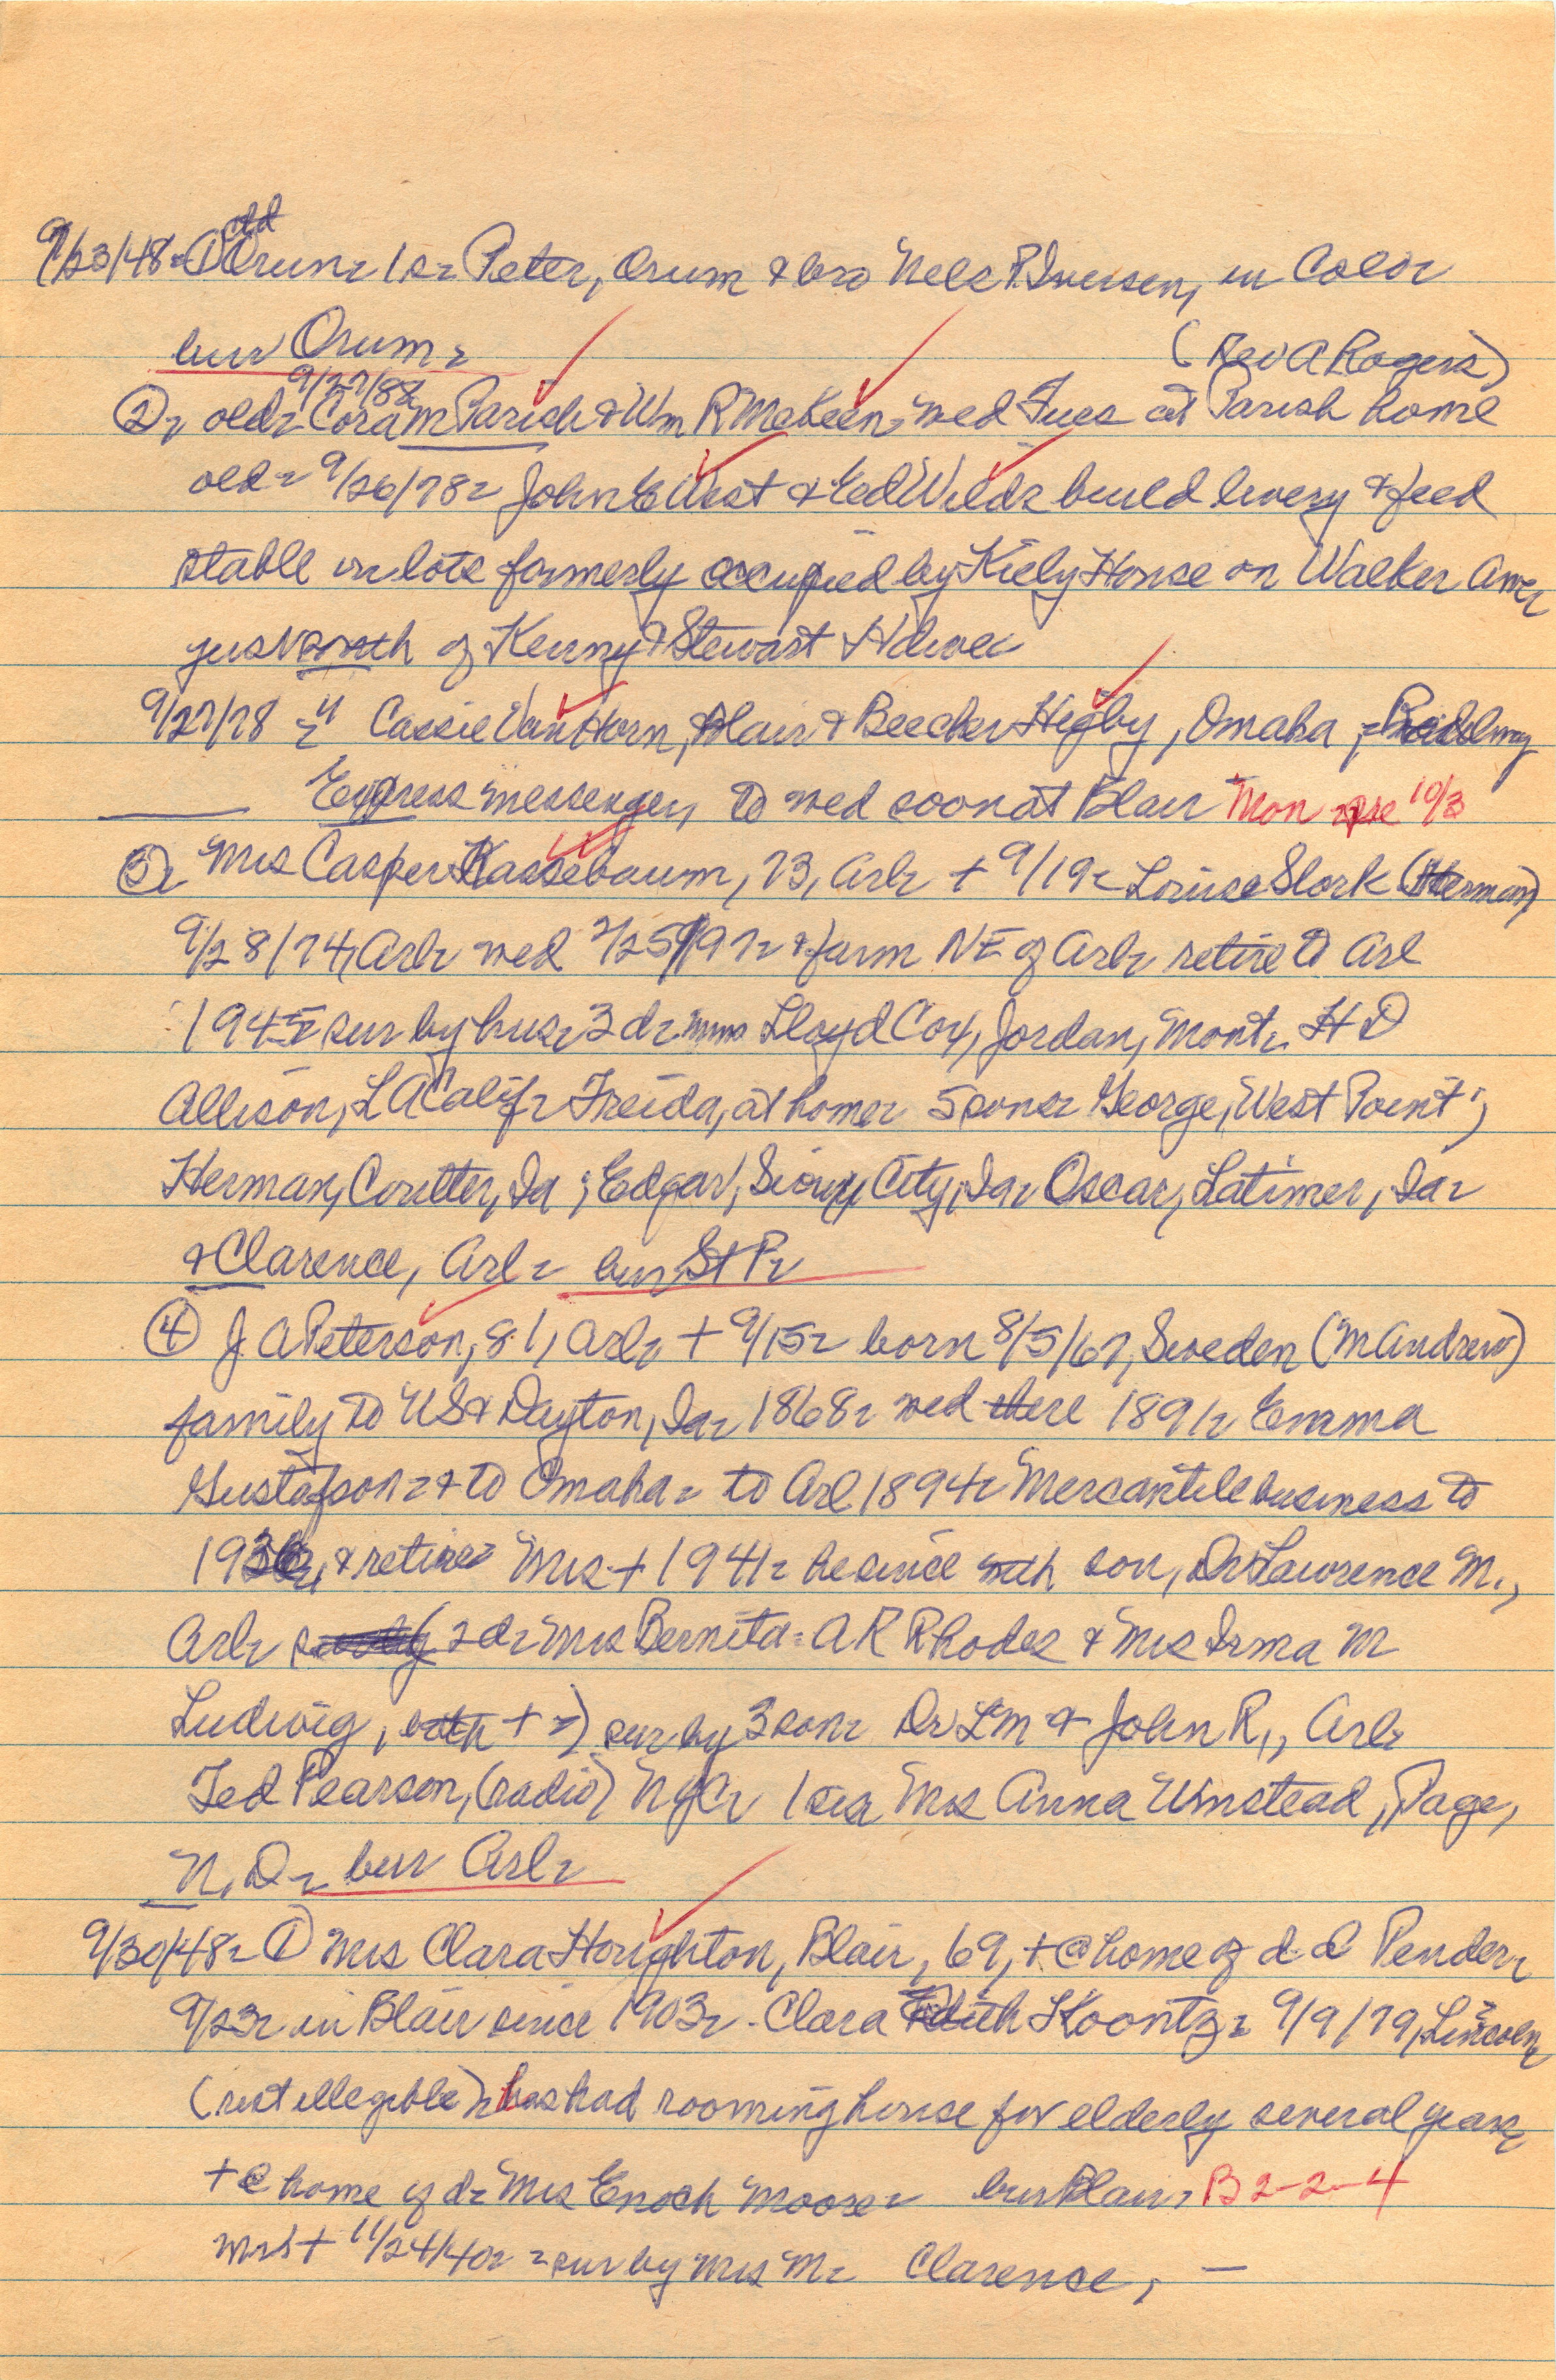 9/23/48- ① Orum- 1 s- Peter, Orum & bro Nels P. Iversen, in Color
bur Orum-
(Rev A Rogers)
9/27/88
②- old- Cora M Parish & Wm R McKeen, wed Tues at Parish home
old- 9/26/78- John E West & Ed Wilds build livery & feed
stable on lots formerly occupied by Kiely House on Walker Ave-
just north of Kenny & Stewart Hdwe
9/27/78 - " Cassie Van Horn, Blair & Beecher Higby, Omaha, - Railway
Express messenger, to wed soon at Blair Mon 10/3
③- Mrs Casper Kassebaum, 73, Arl- + 9/19- Louise Stork (Herman)
9/28/74, Arl- wed 2/25/97- & farm NE of Arl- retire to Arl
1945- sur by hus- 3 d- mms Lloyd Cox, Jordan, Mont-. H D
Allison, LA Calif- Freida, at home- 5 sons- George, West Point;
Herman, Coulter, Ia; Edgar, Sioux City, Ia- Oscar, Latimer, Ia-
& Clarence, Arl- bur St P-
④ J A Peterson, 81, Arl- + 9/15- born 8/5/67, Sweden (M Andrew)
family to US & Dayton, Ia- 1868- wed there 1891- Emma
Gustafson- & to Omaha- to Arl 1894- Mercantile business to
& retire- Mrs + 1941- he since with son, Dr Lawrence M.,
Arl- 2 d- Mrs Bernita- A R Rhodes & Mrs Irma M
Ludwig, both + -) sur by 3 son- Dr LM & John R., Arl-
Ted Pearson, (radio) NYC- 1 sis Mrs Anna Umstead, Page,
N, D- bur Arl-
9/30/48- ① Mrs Clara Houghton, Blair, 69, + @ home of d- @ Pender-
9/23- in Blair since 1903-. Clara Edith Koontz- 9/9/79, Lincoln-
(rest illegible)- has had rooming house for elderly several years-
+ @ home of d- Mrs Enoch Moose- bur Blair- B 2-2-4
Mr + 11/24/40- - sur by Mrs M- Clarence, -